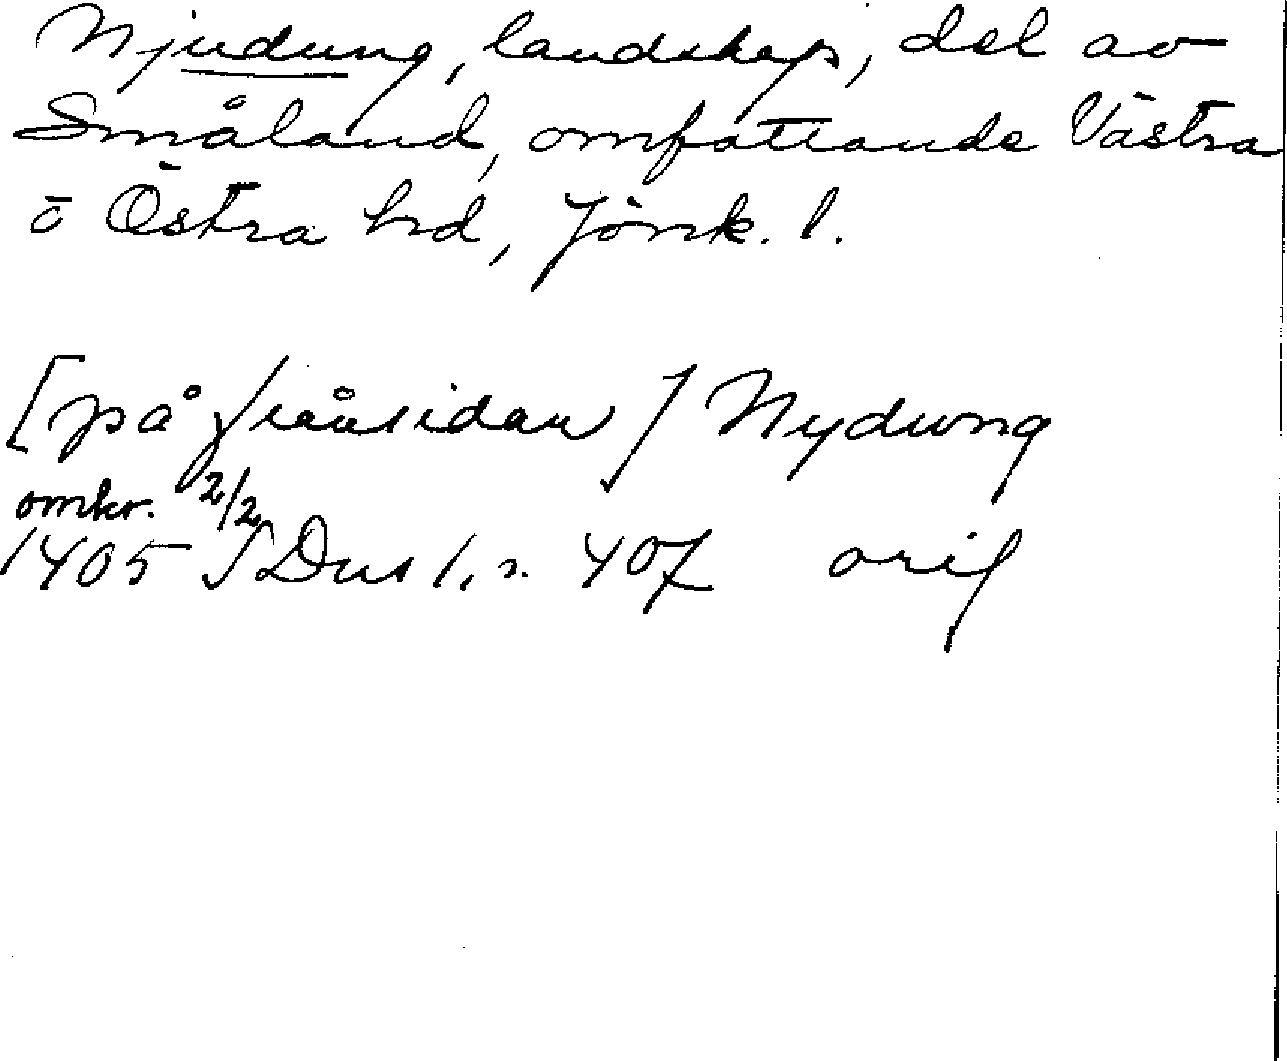 Njudung, landskap, del av
Småland, omfattande Västra
o Östra hd, Jönk. l.
[på frånsidan] Nydung
omkr. 2/2
1405 SDns 1, s. 407 orig